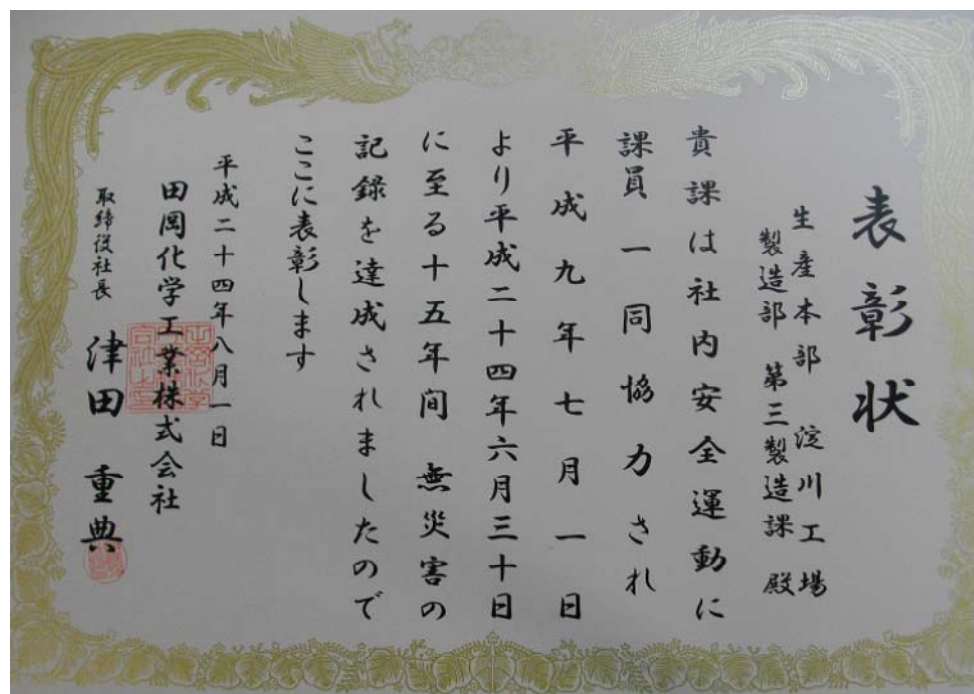 表彰状
生産本部 淀川工場
製造部 第三製造課 殿
貴課は社内安全運動に
課員一同協力され
平成九年七月一日
より平成二十四年六月三十日
に至る十五年間 無災害の
記録を達成されましたので
ここに表彰します
平成二十四年八月一日
田岡化学工業株式会社
取締役社長 津田 重典